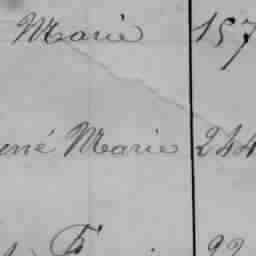 Marie 157
ené Marie 244